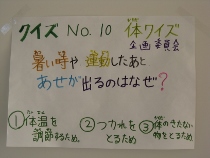 クイズ No.10 体クイズ
企画委員会
暑い時や 運動したあと
あせが 出るのはなぜ?
①体温を
調節するため。
②つかれを
とるため
③体のきたない
物をとるため